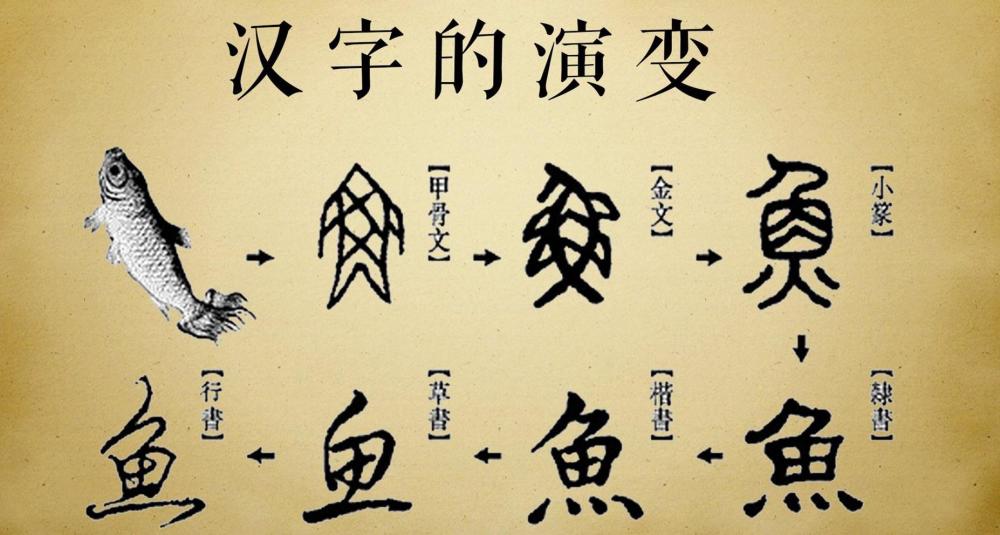 汉字的演变
【甲骨文】
【金文】
【小篆】
【隸書】
【楷書】
【草書】
【行書】
魚
魚
鱼
魚